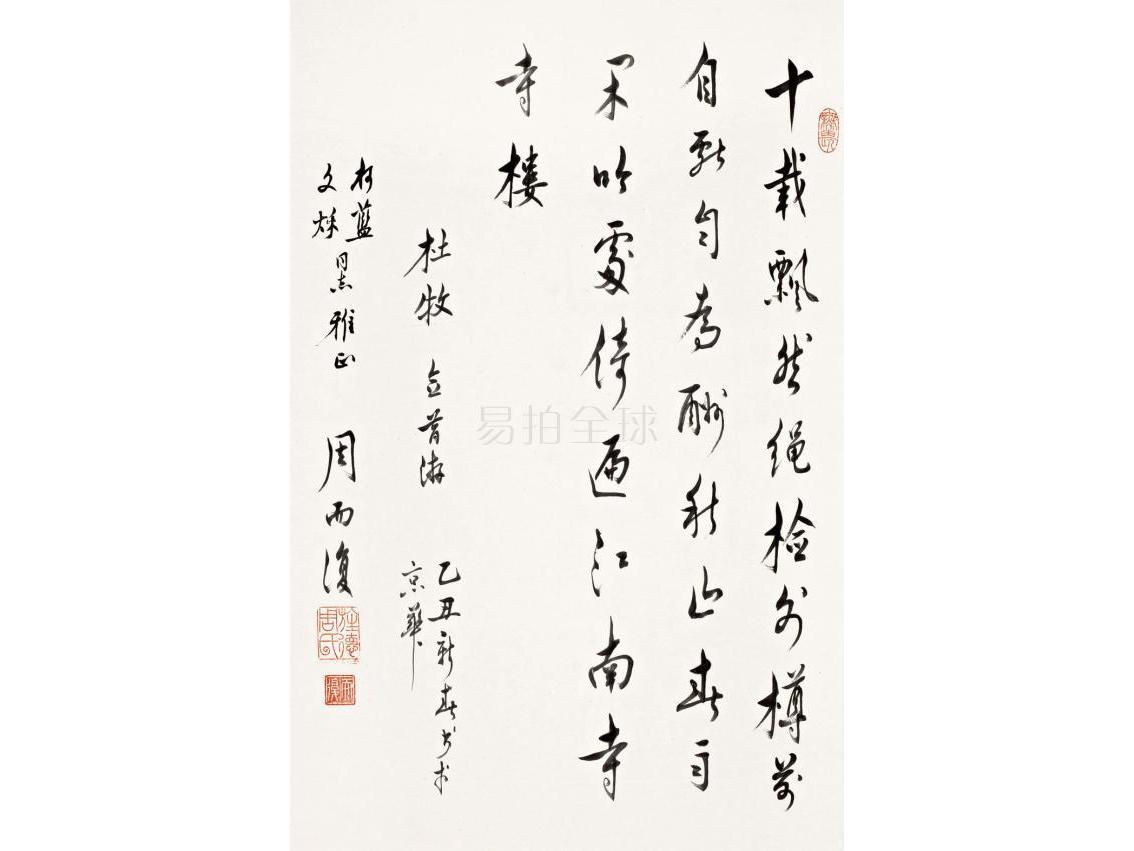 十載飘然绳检外樽前
自献自為酬秋山春雨
闲吟處倚遍江南寺
寺楼
杜牧 念昔游
乙丑新春书于
京華
柯蓝
文秋 同志雅正
周而復
易拍全球